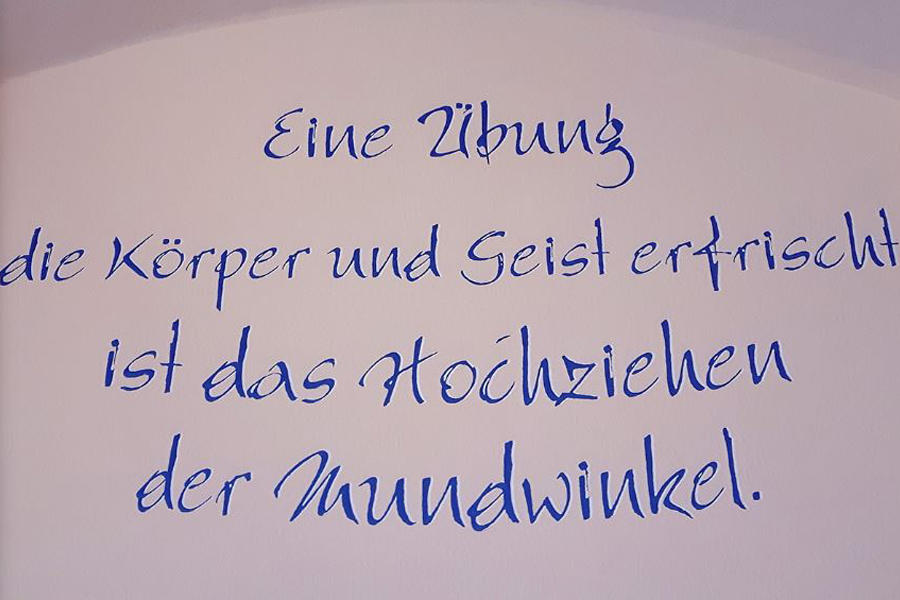 Eine Übung
die Körper und Geist erfrischt
ist das Hochziehen
der Mundwinkel.